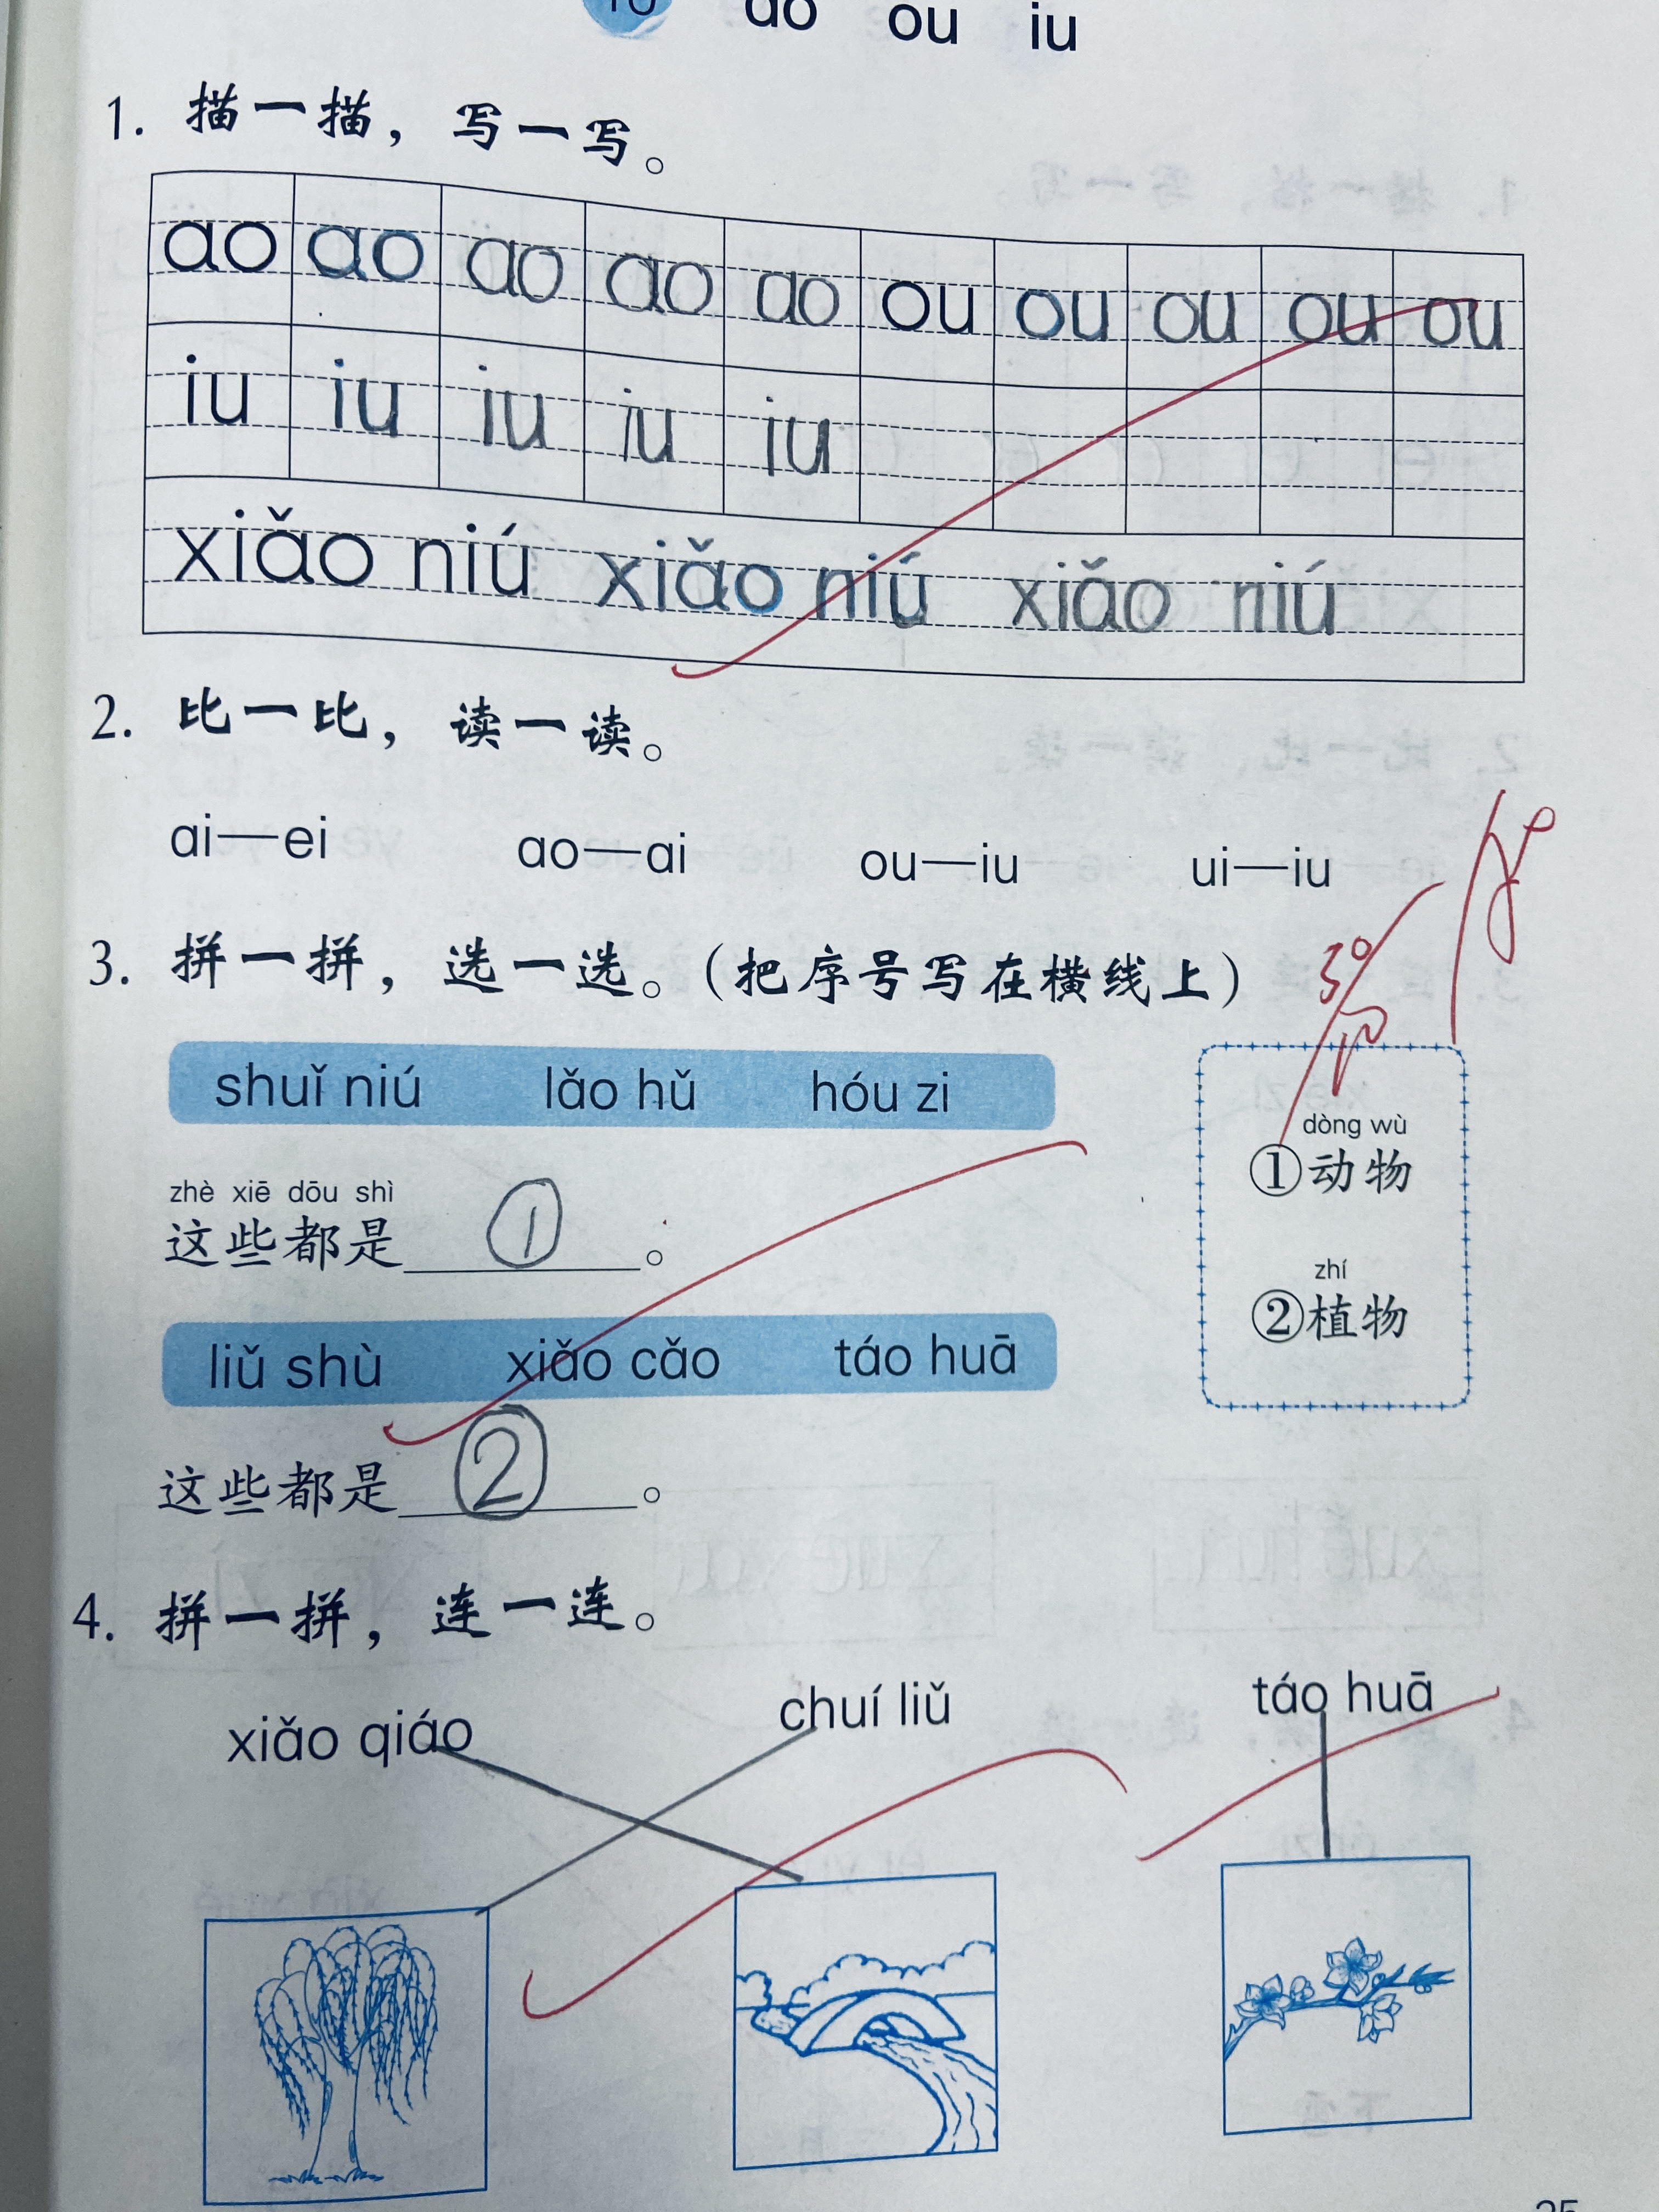 10 ao ou iu
1. 描一描，写一写。
ao ao ao ao ao ou ou ou ou ou
iu iu iu iu iu
xiǎo niú xiǎo niú xiǎo niú
2. 比一比，读一读。
ai—ei ao—ai ou—iu ui—iu
3. 拼一拼，选一选。（把序号写在横线上）
shuǐ niú lǎo hǔ hóu zi
zhè xiē dōu shì
这些都是 ① 。
liǔ shù xiǎo cǎo táo huā
这些都是 ② 。
dòng wù
①动物
zhí
②植物
4. 拼一拼，连一连。
xiǎo qiáo chuí liǔ táo huā